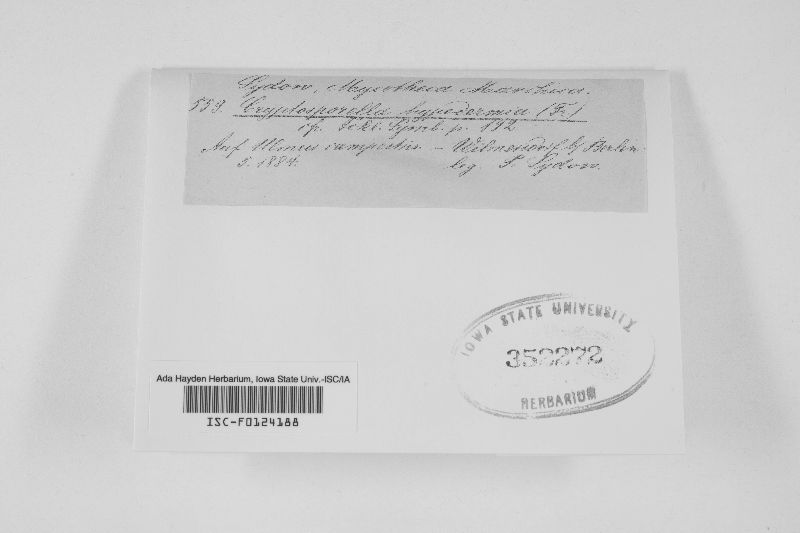 Sydow, Mycotheca Marchica.
559. Cryptosporella hypodermia (Fr.)
cf. Fckl. Symb. p. 192
Auf Ulmus campestris. – Wilmersdorf b/ Berlin.
5. 1884. leg. P. Sydow.
IOWA STATE UNIVERSITY
352272
HERBARIUM
Ada Hayden Herbarium, Iowa State Univ.-ISC/IA
ISC-F0124188